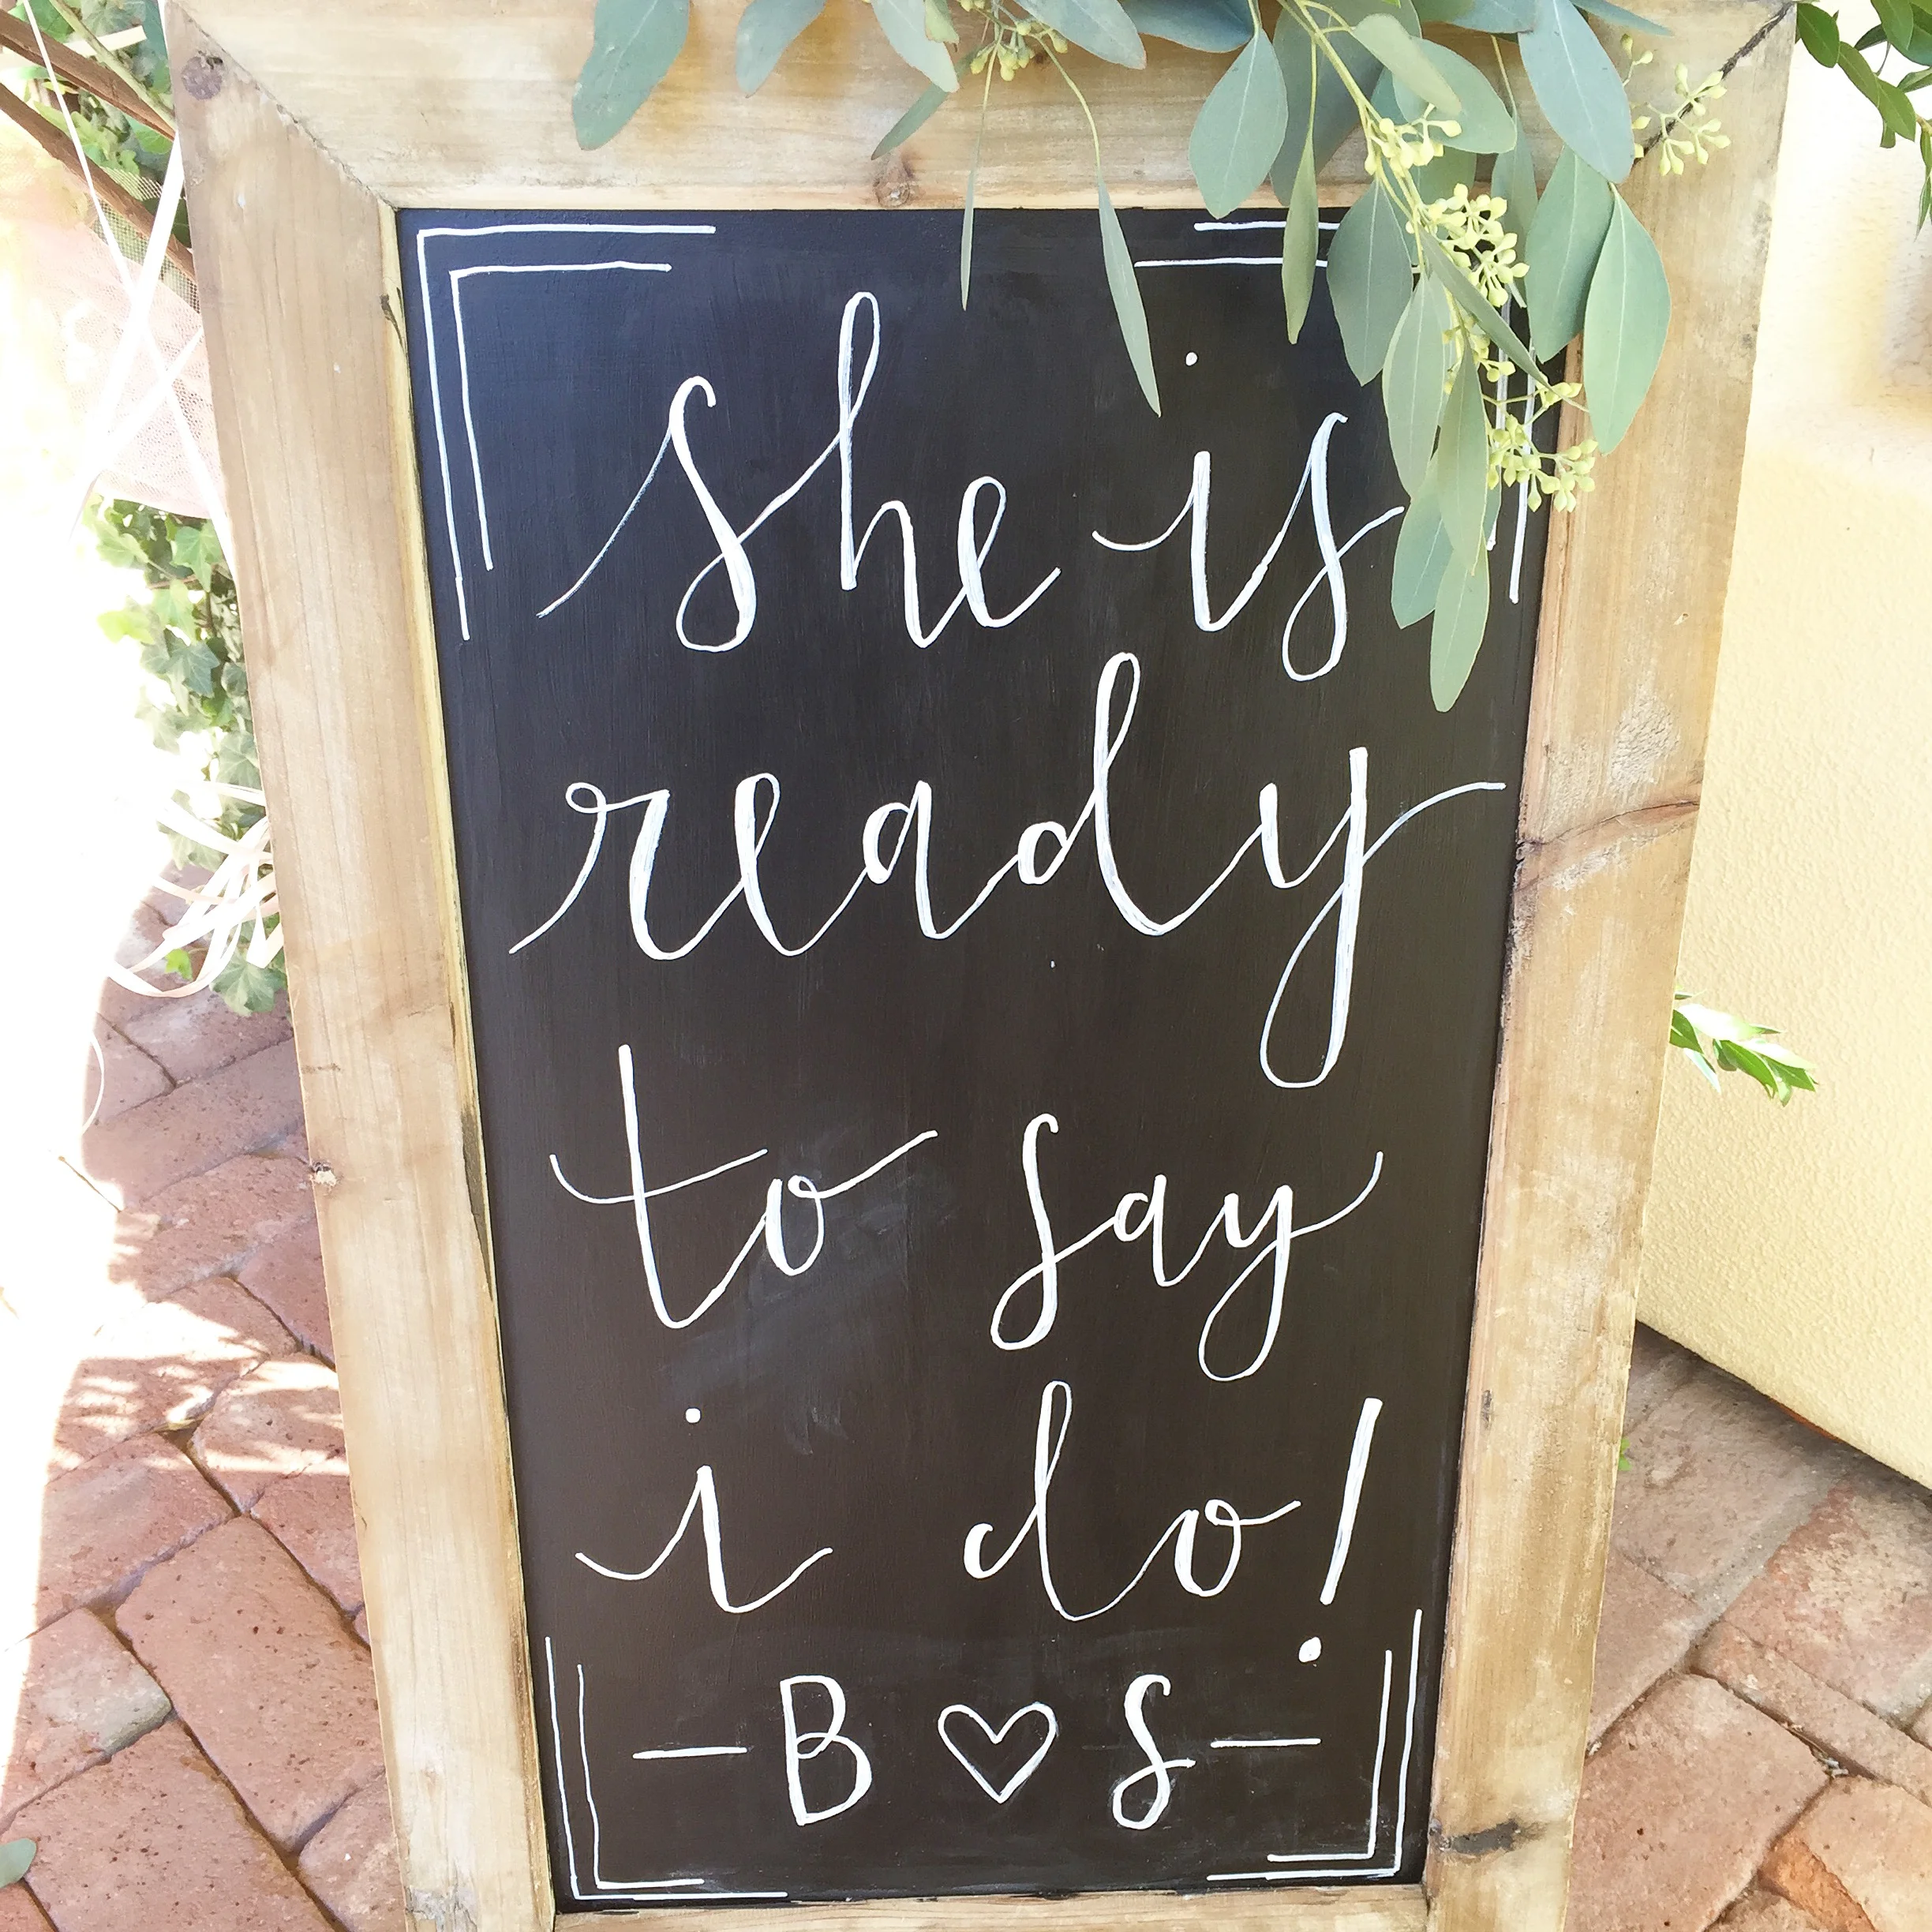 she is
ready
to say
i do!
— B ♡ S —